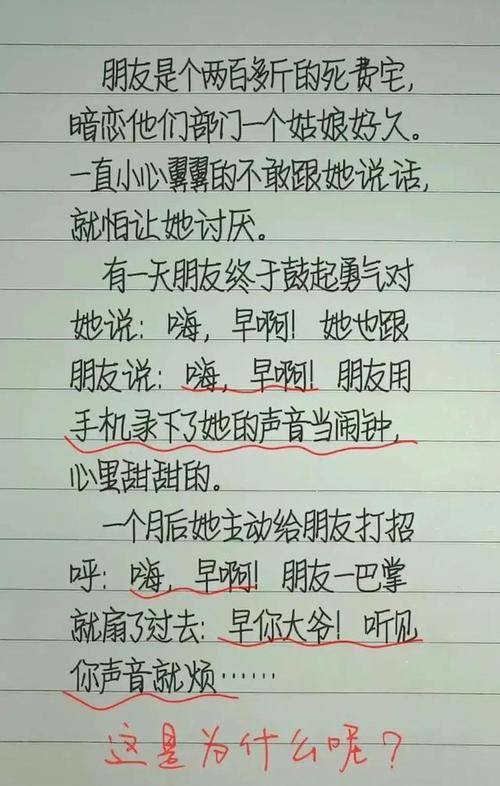 朋友是个两百多斤的死费宅,
暗恋他们部门一个姑娘好久。
一直小心翼翼的不敢跟她说话,
就怕让她讨厌。
有一天朋友终于鼓起勇气对
她说: 嗨, 早啊! 她也跟
朋友说: 嗨, 早啊! 朋友用
手机录下了她的声音当闹钟,
心里甜甜的。
一个月后她主动给朋友打招
呼: 嗨, 早啊! 朋友一巴掌
就扇了过去: 早你大爷! 听见
你声音就烦……
这是为什么呢?